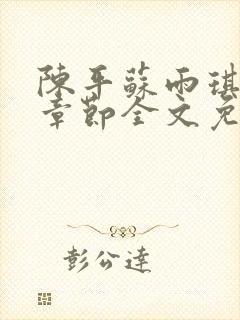 陳平蘇雨琪
章節全文免
彭公達